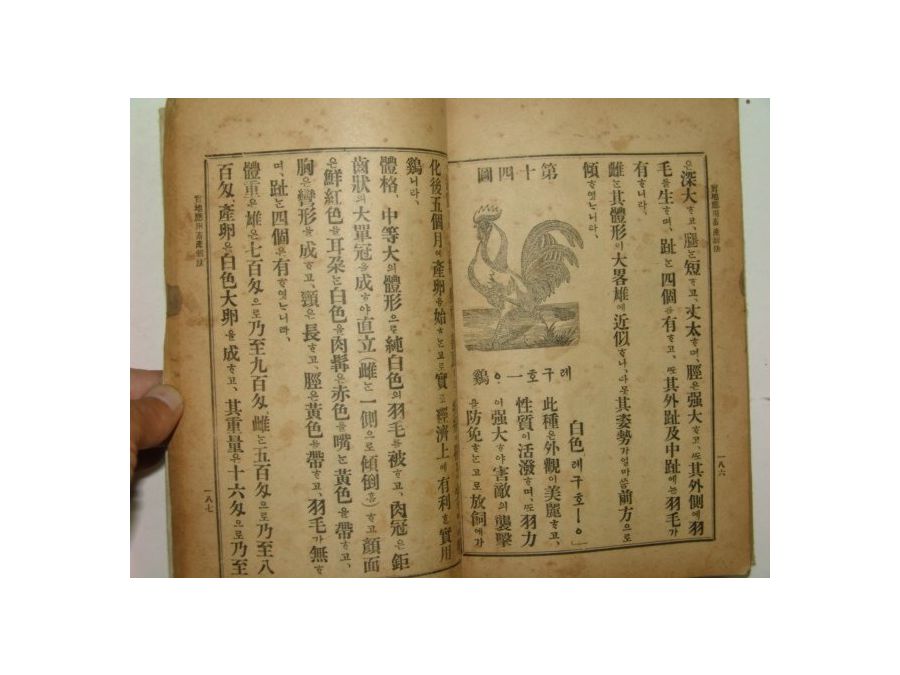 은深大ᄒᆞ고、腿ᄂᆞᆫ短ᄒᆞ고、丈太ᄒᆞ며、脛은强大ᄒᆞ고、ᄯᅩ其外側에羽
毛를生ᄒᆞ며、趾ᄂᆞᆫ四個를有ᄒᆞ고、ᄯᅩ其外趾及中趾에ᄂᆞᆫ羽毛가
有ᄒᆞ니라、
雌ᄂᆞᆫ其體形이大畧雄에近似ᄒᆞ나、다못其姿勢가얼마ᄶᅳᆷ前方으로
傾ᄒᆞ엿ᄂᆞ니라、
第十四圖
레구호ー ᆼ鷄
白色레구호ーᆼ
此種은外觀이美麗ᄒᆞ고、
性質이活潑ᄒᆞ며、ᄯᅩ羽力
이强大ᄒᆞ야害敵의襲擊
을防免ᄒᆞᄂᆞᆫ고로放飼에
一八六
化後五個月에產卵을始ᄒᆞᄂᆞᆫ고로實로經濟上에有利ᄒᆞᆫ實用
鷄니라、
體格、中等大의體形으로純白色의羽毛를被ᄒᆞ고、肉冠은鉅
齒狀의大單冠을成ᄒᆞ야直立(雌ᄂᆞᆫ一側으로傾倒ᄒᆞᆷ)ᄒᆞ고顔面
은鮮紅色을耳朶ᄂᆞᆫ白色을肉髯은赤色을嘴ᄂᆞᆫ黃色을帶ᄒᆞ고、
胸은彎形을成ᄒᆞ고、頸은長ᄒᆞ고、脛은黃色을帶ᄒᆞ고、羽毛가無ᄒᆞ
며、趾ᄂᆞᆫ四個은有ᄒᆞ엿ᄂᆞ니라、
體重은雄은七百匁으로乃至九百匁、雌ᄂᆞᆫ五百匁으로乃至八
百匁、產卵은白色大卵을成ᄒᆞ고、其重量은十六匁으로乃至
一八七